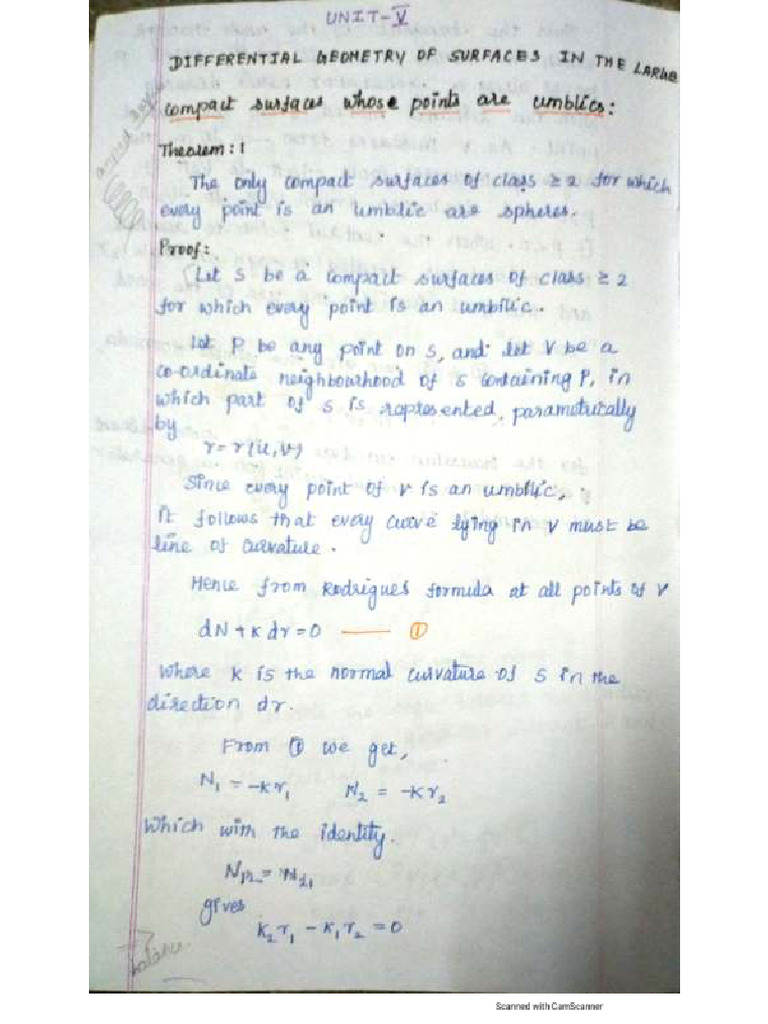 UNIT-V
DIFFERENTIAL GEOMETRY OF SURFACES IN THE LARGE
compact surfaces whose points are umblics:
Theorem: 1
The only compact surfaces of class ≥ 2 for which
every point is an umbilic are spheres.
Proof:
Let S be a compact surfaces of class ≥ 2
for which every point is an umbilic.
Let P be any point on S, and let V be a
co-ordinate neighbourhood of S containing P, in
which part of S is represented, parametrically
by
r = r(u,v)
Since every point of V is an umbilic,
it follows that every curve lying in V must be
line of curvature.
Hence from Rodrigues formula at all points of V
dN + K dr = 0 —— ①
Where K is the normal curvature of S in the
direction dr.
From ① we get,
N₁ = -K r₁ N₂ = -K r₂
Which with the identity.
N₁₂ = N₂₁
gives
K₂ r₁ - K₁ r₂ = 0
balance
Scanned with CamScanner